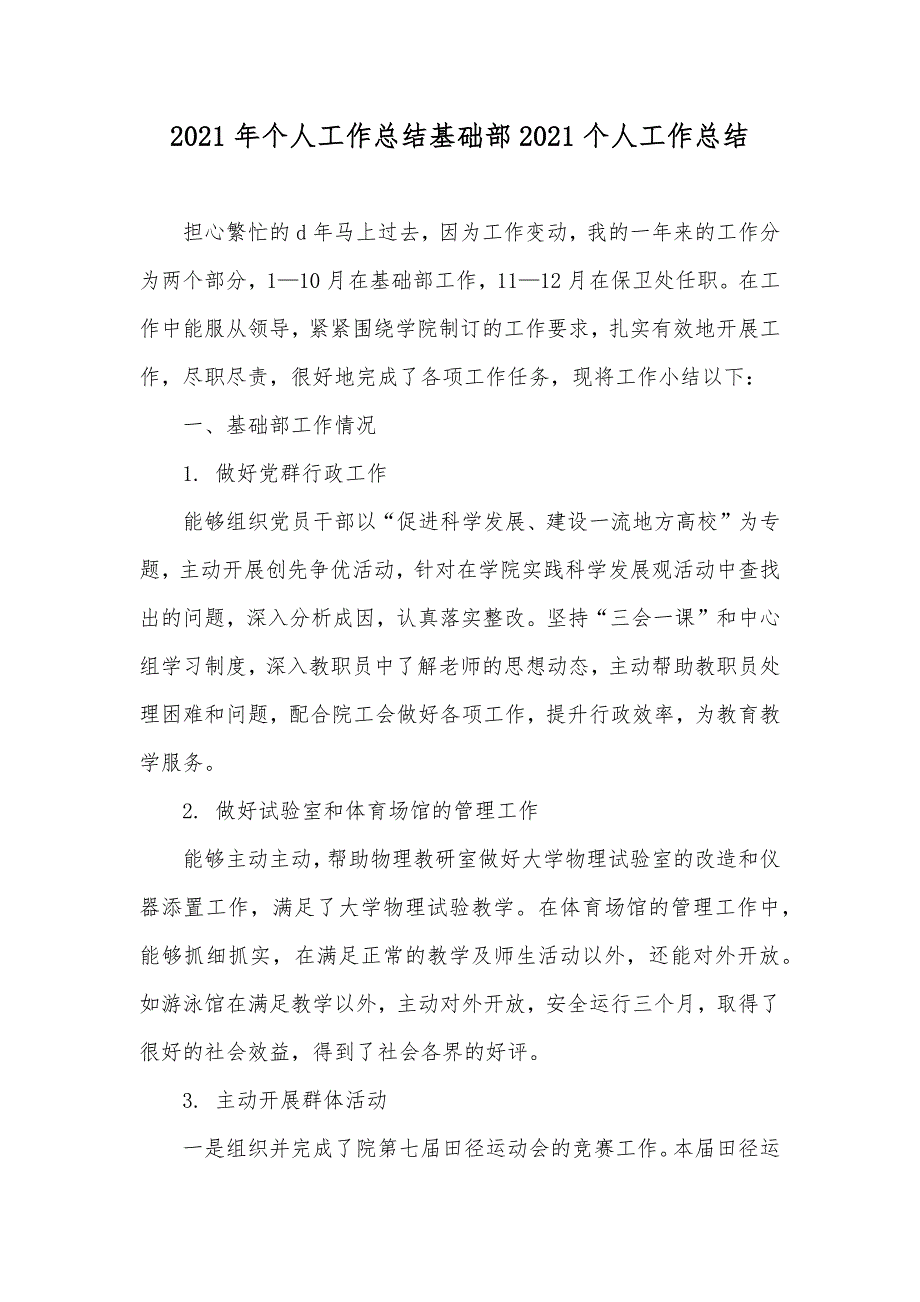 2021年个人工作总结基础部2021个人工作总结
担心繁忙的d年马上过去，因为工作变动，我的一年来的工作分
为两个部分，1—10月在基础部工作，11—12月在保卫处任职。在工
作中能服从领导，紧紧围绕学院制订的工作要求，扎实有效地开展工
作，尽职尽责，很好地完成了各项工作任务，现将工作小结以下：
一、基础部工作情况
1. 做好党群行政工作
能够组织党员干部以“促进科学发展、建设一流地方高校”为专
题，主动开展创先争优活动，针对在学院实践科学发展观活动中查找
出的问题，深入分析成因，认真落实整改。坚持“三会一课”和中心
组学习制度，深入教职员中了解老师的思想动态，主动帮助教职员处
理困难和问题，配合院工会做好各项工作，提升行政效率，为教育教
学服务。
2. 做好试验室和体育场馆的管理工作
能够主动主动，帮助物理教研室做好大学物理试验室的改造和仪
器添置工作，满足了大学物理试验教学。在体育场馆的管理工作中，
能够抓细抓实，在满足正常的教学及师生活动以外，还能对外开放。
如游泳馆在满足教学以外，主动对外开放，安全运行三个月，取得了
很好的社会效益，得到了社会各界的好评。
3. 主动开展群体活动
一是组织并完成了院第七届田径运动会的竞赛工作。本届田径运